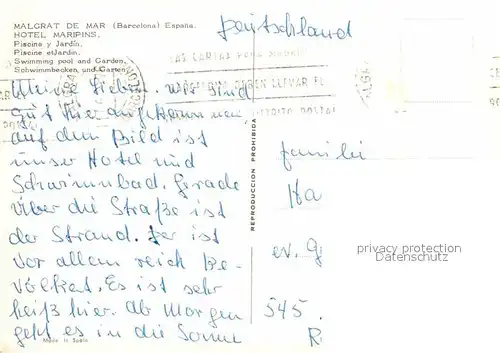 MALGRAT DE MAR (Barcelona) España.
HOTEL MARIPINS.
Piscina y Jardín.
Piscine et Jardin.
Swimming pool and Garden.
Schwimmbecken und Garten.
Deutschland
LAS CARTAS PARA
DEBEN LLEVAR
DISTRITO POSTAL
Meine Lieben. Wir sind
gut hier angekommen,
auf dem Bild ist
unser Hotel und
Schwimmbad. Gerade
über die Straße ist
der Strand. Der ist
vor allem reich Be-
völkert. Es ist sehr
heiß hier. Ab Morgen
geht es in die Sonne
REPRODUCCION PROHIBIDA
Familie
Ha
ev. G
545
R
privacy protection
Datenschutz
Made in Spain